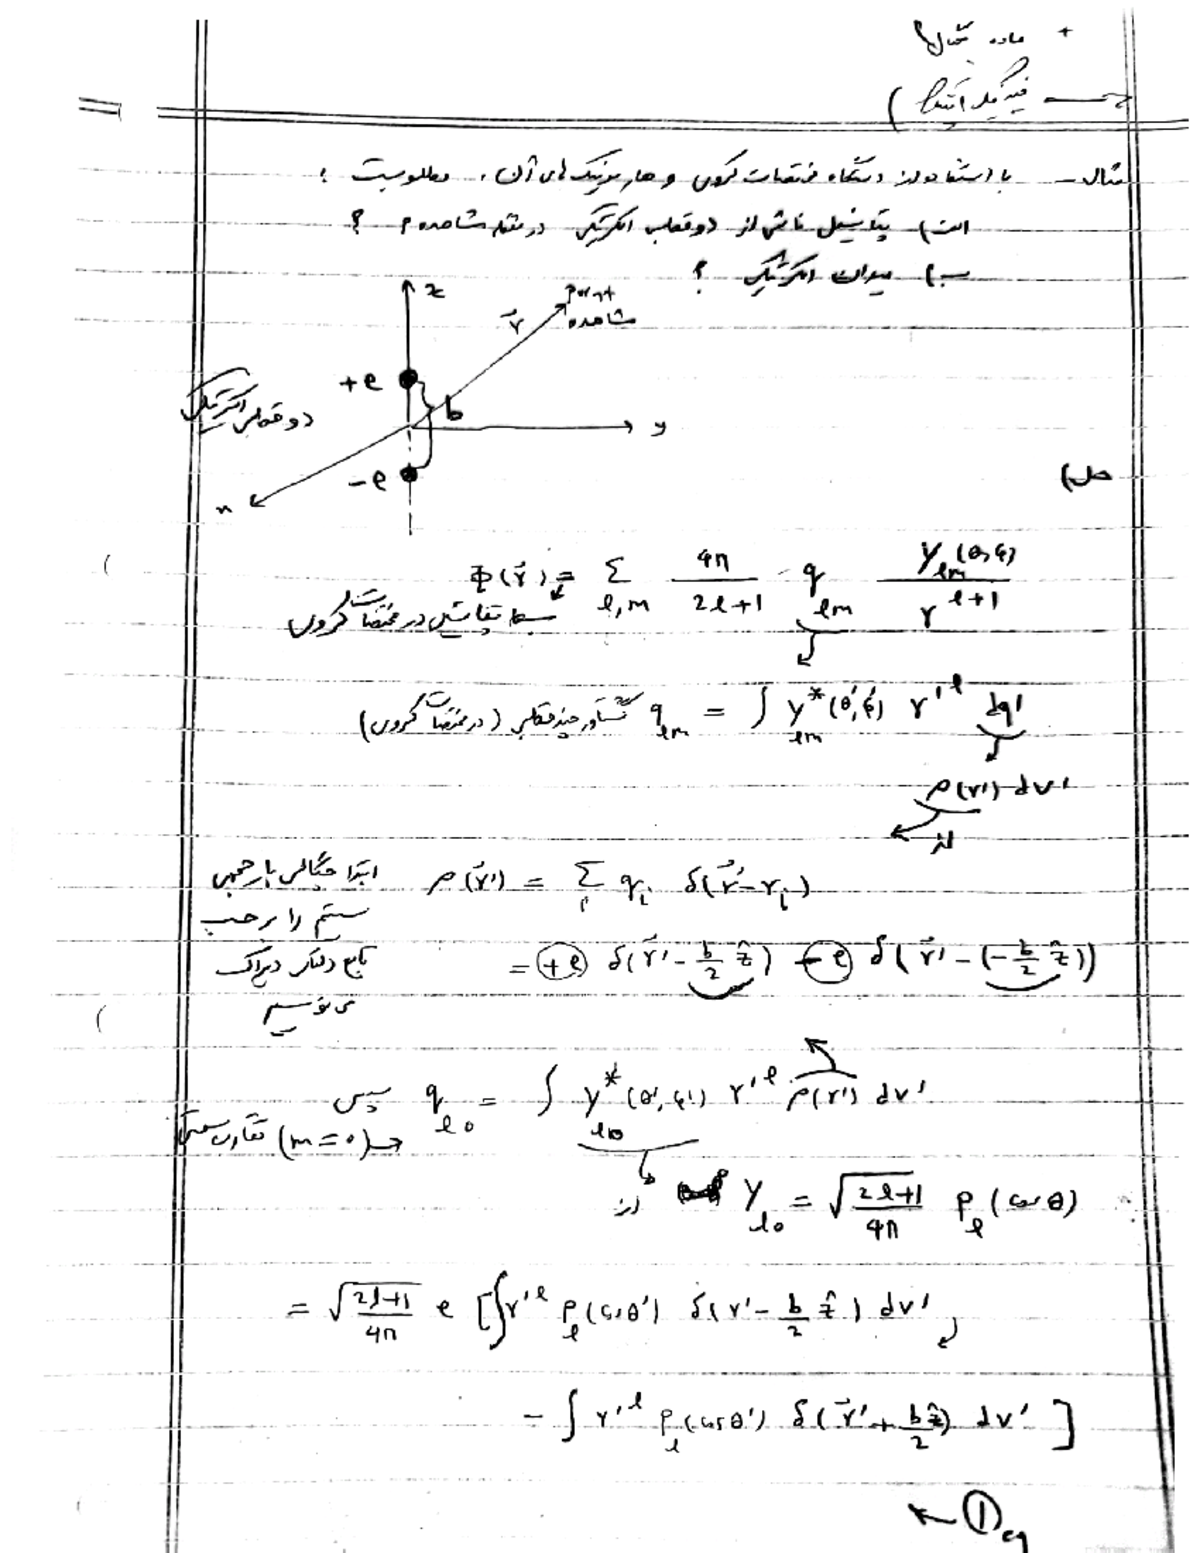 + ماده شمال
فیزیک
مثال - با استفاده از دستگاه مختصات کروی و هارمونیک های آن، مطلوبست :
الف) پتانسیل ناشی از دو قطبی الکتریکی در نقطه مشاهده P ؟
ب) میدان الکتریکی ؟
z
Point
مشاهده
r⃗
+e
b
دو قطبی الکتریکی
y
-e
x
حل)
Φ(r⃗) = Σ_{l,m} 4π/(2l+1) q_{lm} Y_{lm}(θ,φ)/r^{l+1}
بسط پتانسیل در مختصات کروی
گشتاور چند قطبی (در مختصات کروی) q_{lm} = ∫ Y*_{lm}(θ',φ') r'^l dq'
ρ(r') dv'
از
ابتدا چگالی بار حجمی ρ(r⃗') = Σ_i q_i δ(r⃗'-r_i)
سیستم را بر حسب
تابع دلتای دیراک = +e δ(r⃗' - b/2 ẑ) - e δ(r⃗' - (-b/2 ẑ))
می نویسیم
سپس q_{l0} = ∫ Y*_{l0}(θ',φ') r'^l ρ(r') dv'
تقارن سمتی (m=0)
از Y_{l0} = √(2l+1/4π) P_l(cosθ)
= √(2l+1/4π) e [∫ r'^l P_l(cosθ') δ(r' - b/2 ẑ) dv'
- ∫ r'^l P_l(cosθ') δ(r⃗' + bẑ/2) dv' ]
← ① eq